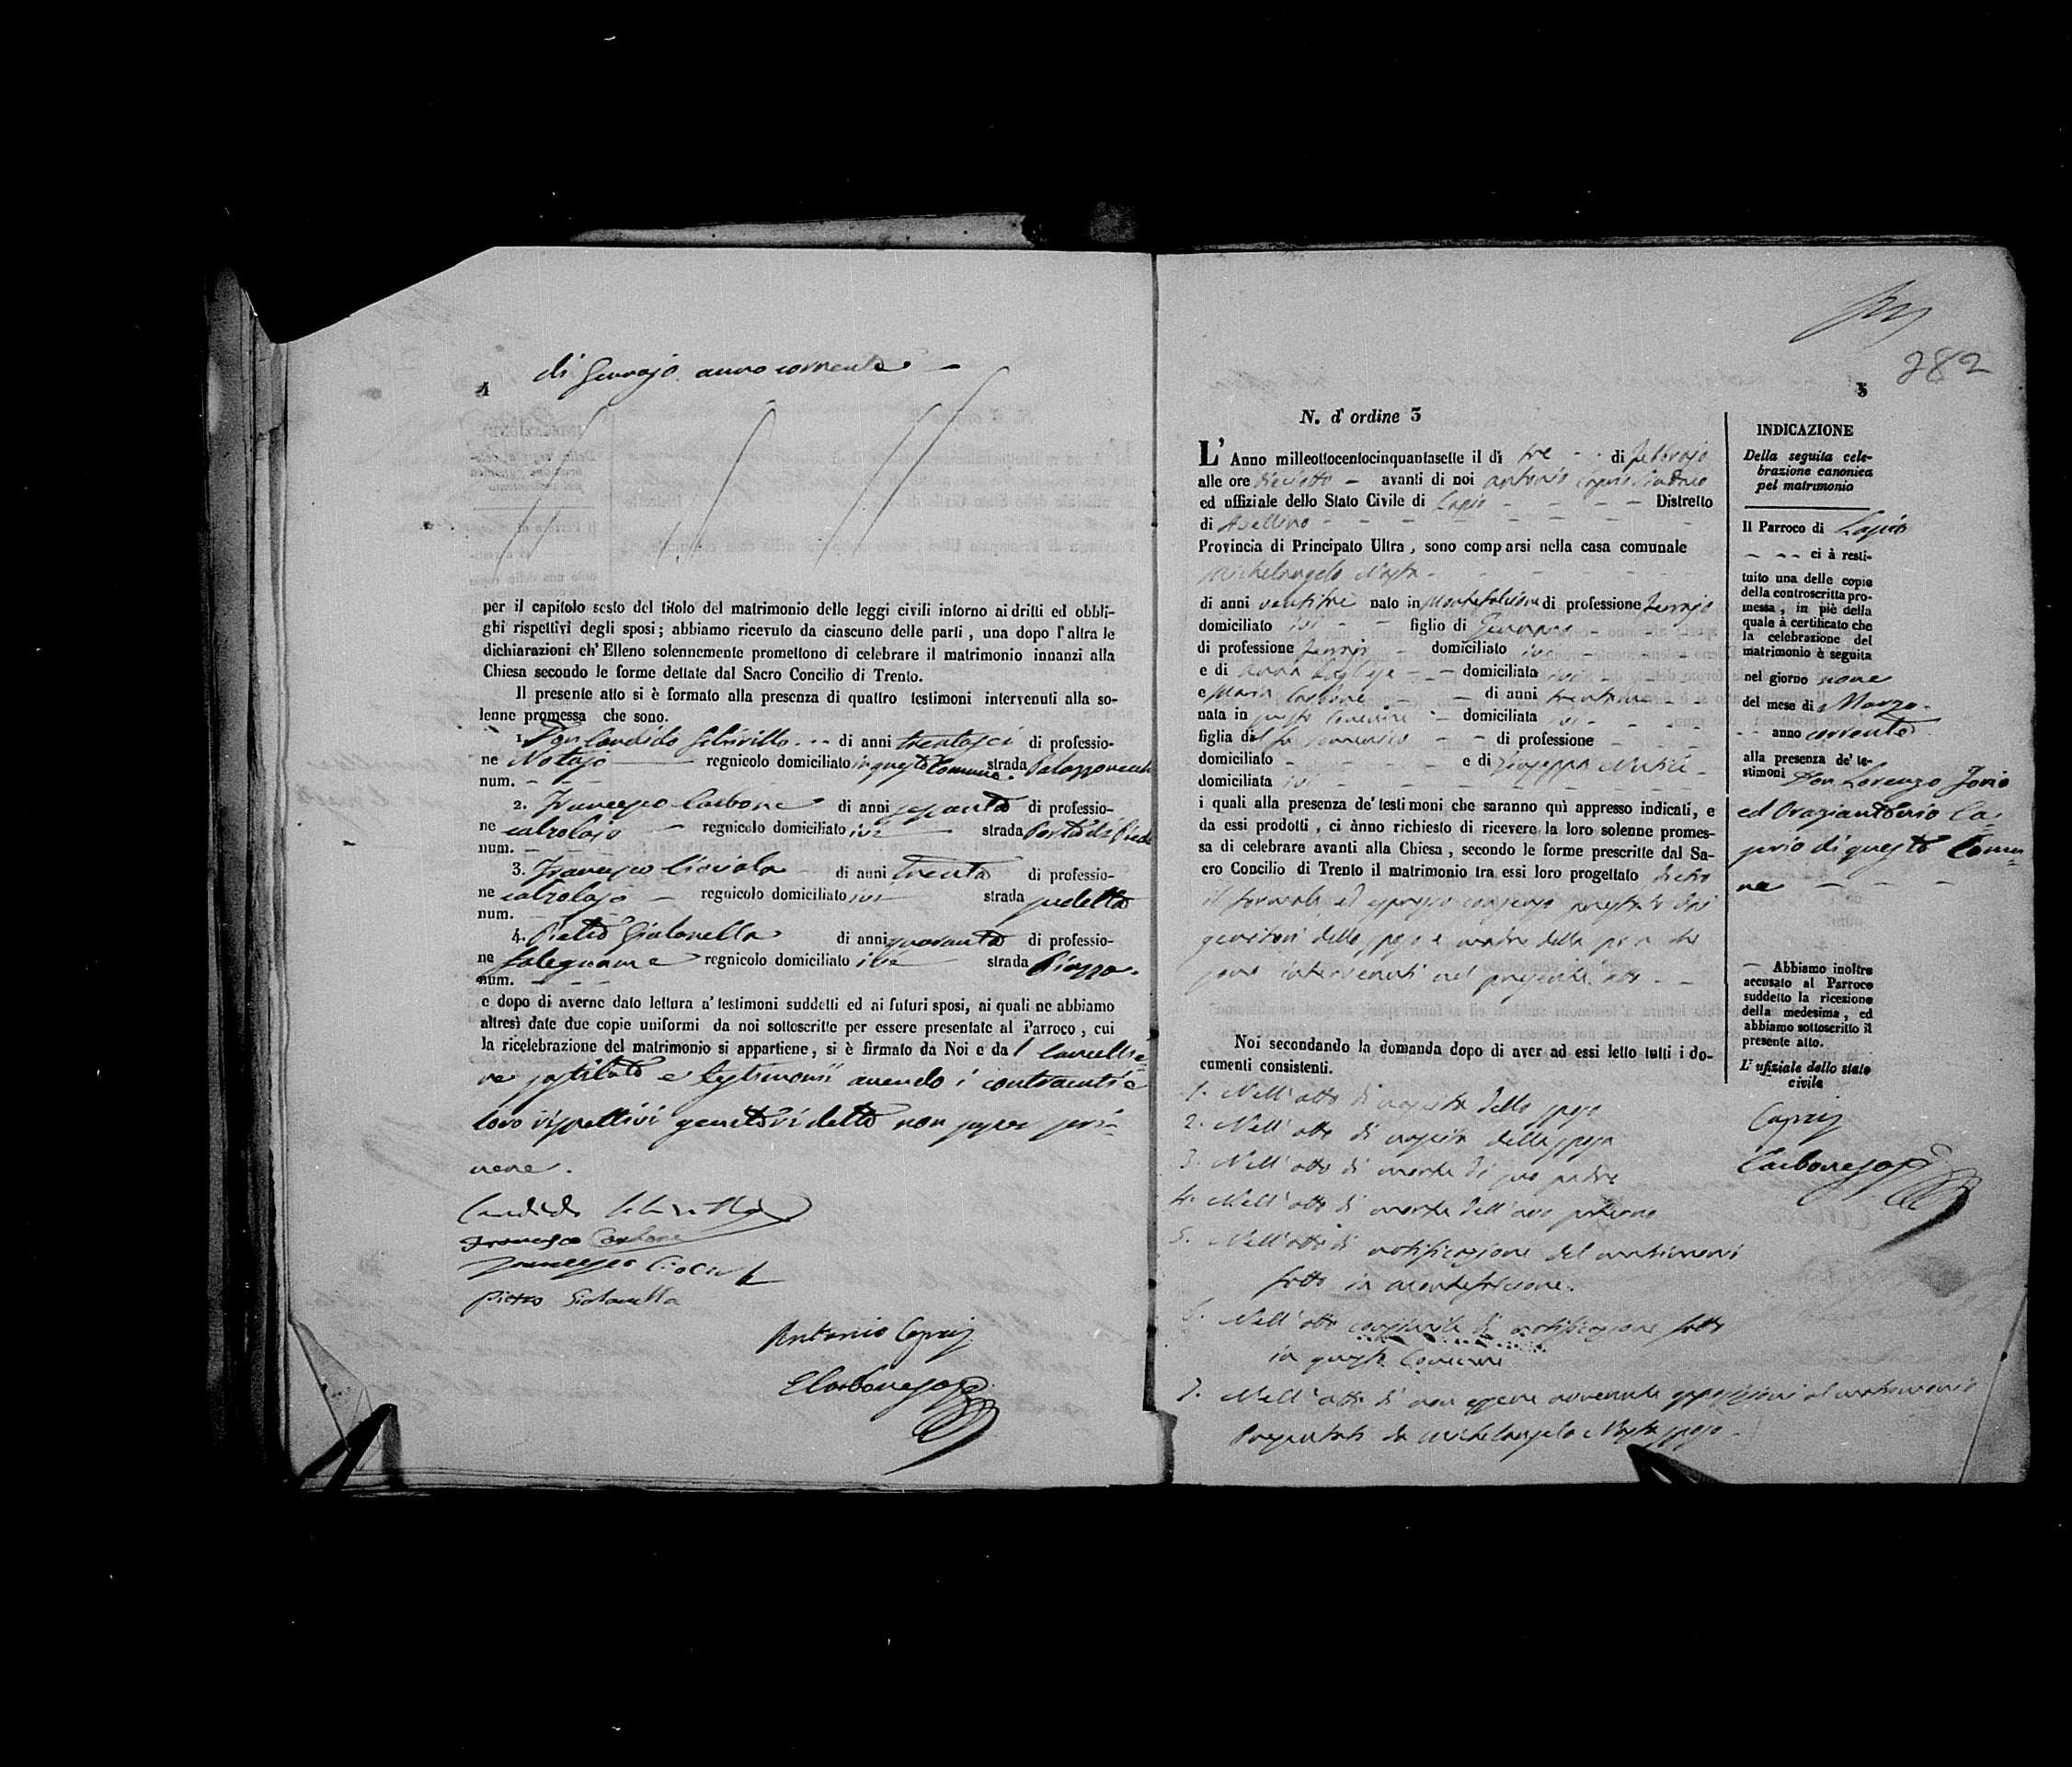 di Gennajo anno corrente
4
per il capitolo sesto del titolo del matrimonio delle leggi civili intorno ai dritti ed obbli-
ghi rispettivi degli sposi; abbiamo ricevuto da ciascuno delle parti, una dopo l'altra le
dichiarazioni ch'Elleno solennemente promettono di celebrare il matrimonio innanzi alla
Chiesa secondo le forme dettate dal Sacro Concilio di Trento.
Il presente atto si è formato alla presenza di quattro testimoni intervenuti alla so-
lenne promessa che sono.
1. Don Candido di anni trentasei di professio-
ne Notajo regnicolo domiciliato in questo Comune strada Palazzo
num.
2. Francesco Carbone di anni sessanta di professio-
ne calzolajo regnicolo domiciliato ivi strada Porta
num.
3. Francesco Ciociola di anni trenta di professio-
ne calzolajo regnicolo domiciliato ivi strada
num.
4. Pietro Giolanella di anni quaranta di professio-
ne falegname regnicolo domiciliato ivi strada Piazza
num.
e dopo di averne dato lettura a' testimoni suddetti ed ai futuri sposi, ai quali ne abbiamo
altresì date due copie uniformi da noi sottoscritte per essere presentate al Parroco, cui
la ricelebrazione del matrimonio si appartiene, si è firmato da Noi e dal Cancellie-
re e testimonii avendo i contraenti e
loro rispettivi genitori detto non saper scri-
vere.
Candido
Francesco Carbone
Francesco Ciociola
Pietro Giolanella
Antonio Caprio
282
5
N. d'ordine 3
L'Anno milleottocentocinquantasette il dì tre di Febbrajo
alle ore dieciotto avanti di noi Antonio Caprio Sindaco
ed uffiziale dello Stato Civile di Lapio Distretto
di Avellino
Provincia di Principato Ultra, sono comparsi nella casa comunale
Michelangelo
di anni ventitre nato in Montefalcione di professione ferrajo
domiciliato ivi figlio di
di professione ferrajo domiciliato ivi
e di Anna domiciliata ivi
e Maria Carbone di anni
nata in questo Comune domiciliata ivi
figlia del fu Domenico di professione
domiciliato e di Giuseppa
domiciliata ivi
i quali alla presenza de' testimoni che saranno quì appresso indicati, e
da essi prodotti, ci ànno richiesto di ricevere la loro solenne promes-
sa di celebrare avanti alla Chiesa, secondo le forme prescritte dal Sa-
cro Concilio di Trento il matrimonio tra essi loro progettato dietro
il formale ed espresso consenso prestato dai
genitori dello sposo e madre della sposa che
sono intervenuti nel presente atto
Noi secondando la domanda dopo di aver ad essi letto tutti i do-
cumenti consistenti.
1. Nell'atto di nascita dello sposo
2. Nell'atto di nascita della sposa
3. Nell'atto di morte di suo padre
4. Nell'atto di morte dell'avo paterno
5. Nell'atto di notificazione del matrimonio
fatto in Montefalcione.
6. Nell'atto di notificazione fatto
in questo Comune
7. Nell'atto di non essere avvenuta opposizioni al matrimonio
Presentati da Michelangelo sposo
INDICAZIONE
Della seguita cele-
brazione canonica
pel matrimonio
Il Parroco di Lapio
ci à resti-
tuito una delle copie
della controscritta pro-
messa, in piè della
quale à certificato che
la celebrazione del
matrimonio è seguita
nel giorno nove
del mese di Marzo
anno corrente
alla presenza de' te-
stimoni Don Lorenzo Jorio
ed Oraziantonio Ca-
prio di questo Comu-
ne
Abbiamo inoltre
accusato al Parroco
suddetto la ricezione
della medesima, ed
abbiamo sottoscritto il
presente atto.
L'ufiziale dello stato
civile
Caprio